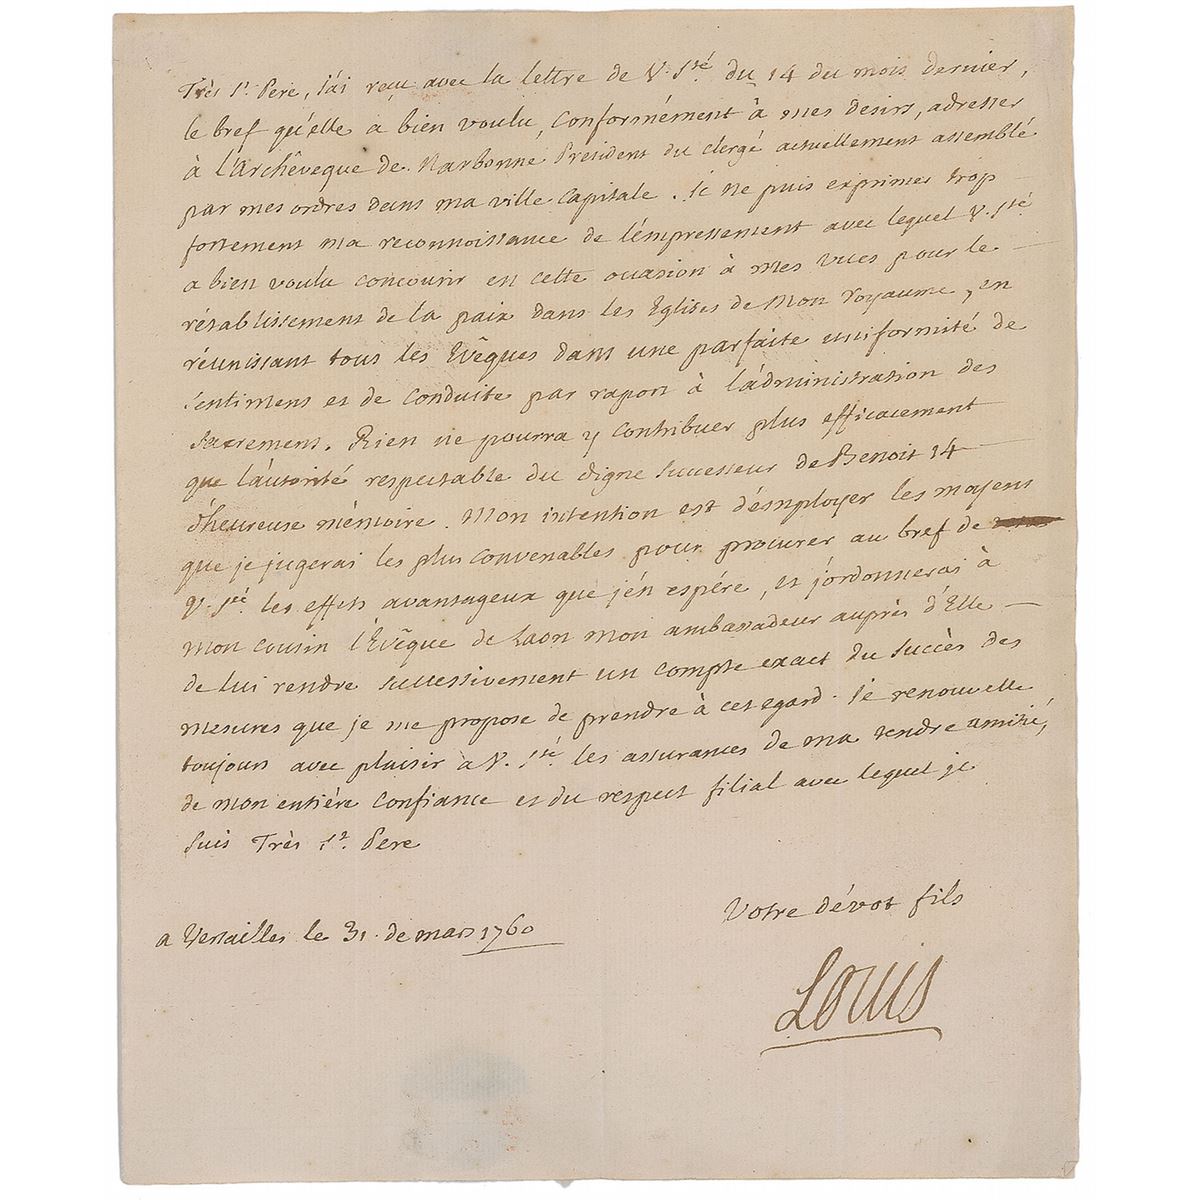 Très St. Pere, J'ai reçu avec la lettre de V. Sté. du 14 du mois dernier,
le bref qu'elle a bien voulu, conformément à mes desirs, adresser
à l'Archêveque de Narbonne Président du clergé actuellement assemblé
par mes ordres dans ma ville capitale. Je ne puis exprimer trop
fortement ma reconnoissance de l'empressement avec lequel V. Sté.
a bien voulu concourir en cette occasion à mes vues pour le
rétablissement de la paix dans les Eglises de Mon royaume, en
réunissant tous les Evêques dans une parfaite uniformité de
sentimens et de conduite par raport à l'administration des
Sacremens. Rien ne pourra y contribuer plus efficacement
que l'autorité respectable du digne successeur de Benoit 14
d'heureuse mémoire. Mon intention est d'employer les moyens
que je jugerai les plus convenables pour procurer au bref de
V. Sté. les effets avantageux que j'en espére, et j'ordonnerai à
Mon cousin l'Evêque de Laon mon ambassadeur auprès d'Elle
de lui rendre successivement un compte exact du succès des
mesures que je me propose de prendre à cet egard. Je renouvelle
toujours avec plaisir à V. Sté. les assurances de ma tendre amitié,
de mon entière confiance et du respect filial avec lequel je
suis Très St. Pere
Votre dévot fils
a Versailles le 31. de mars 1760
Louis